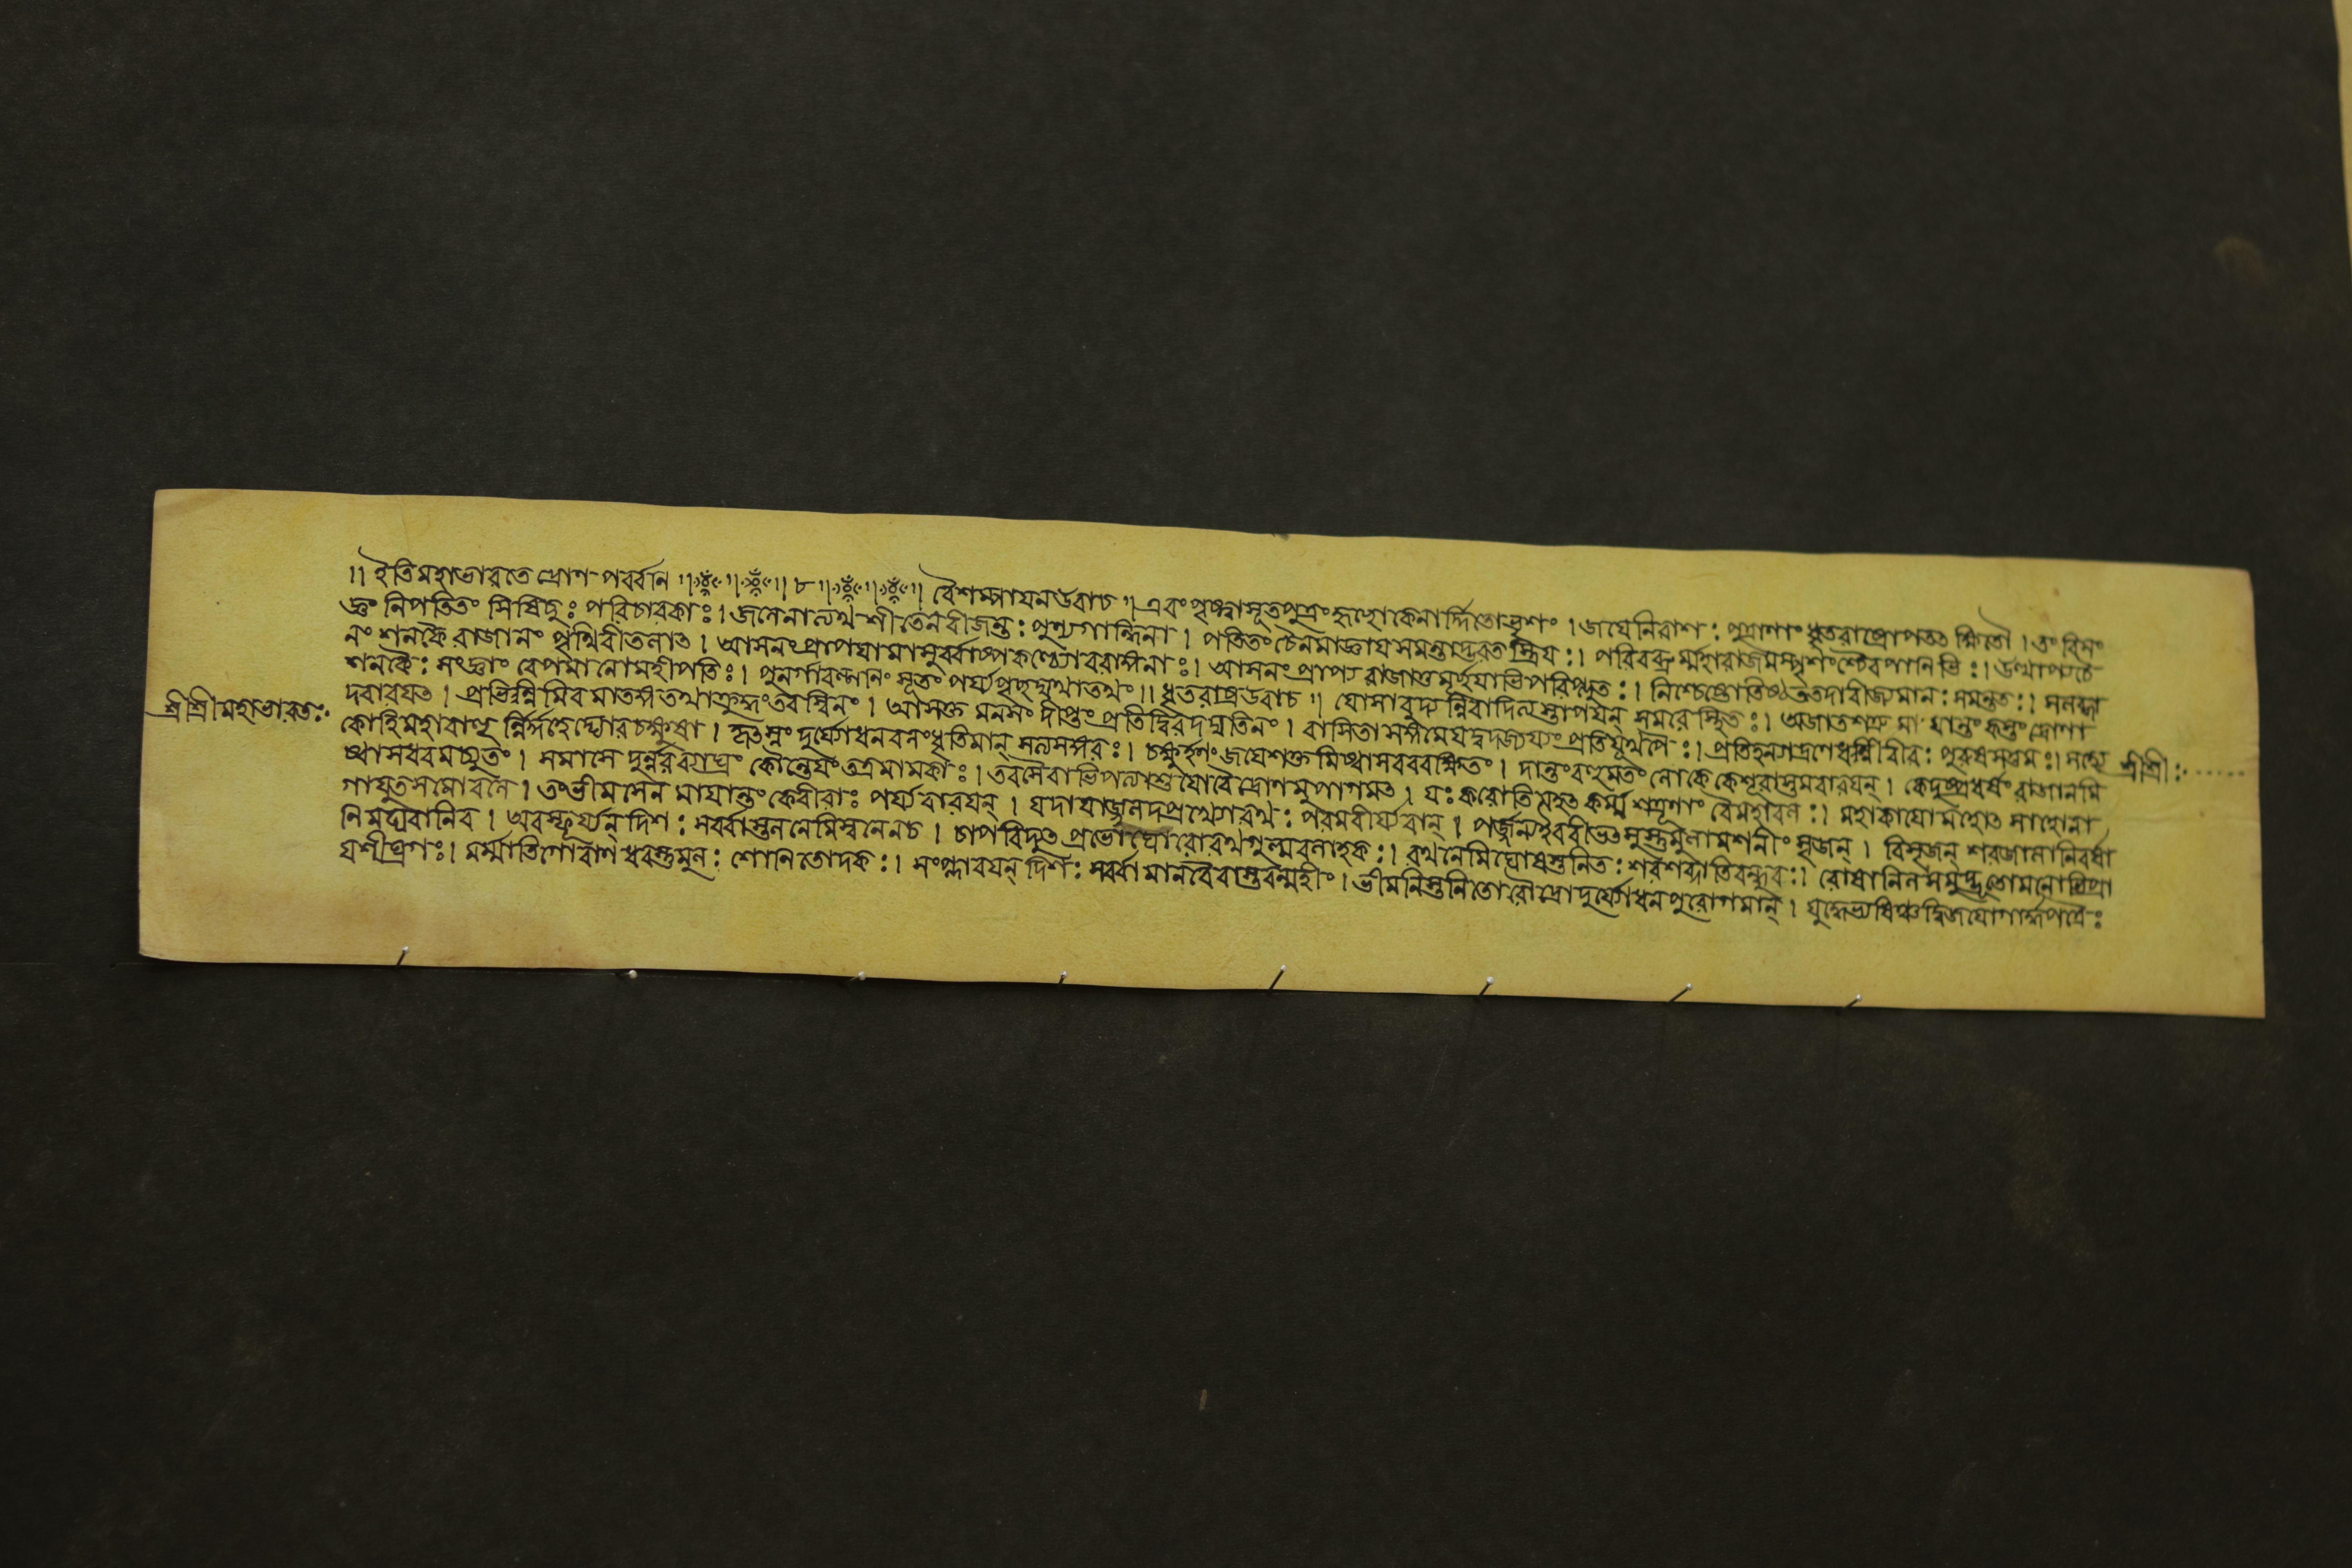 ॥ ইতিমহাভারতে দ্রোণপর্ব্বনি ॥ ৮ ॥ বৈশম্পায়নউবাচ ॥ এবংপৃষ্ট্বাসূতপুত্রংহৃচ্ছোকেনার্দ্দিতোভৃশং । জয়েনিরাশঃ পুত্রাণাং ধৃতরাষ্ট্রোপতৎ ক্ষিতৌ । তং বিসং
জ্ঞং নিপতিতং সিষিচুঃ পরিচারকাঃ । জলেনাত্যর্থ শীতেনবীজন্তঃ পুণ্যগন্ধিনা । পতিতং চৈনমাজ্ঞায়সমন্তাদ্ভরতস্ত্রিয়ঃ । পরিবব্রুর্ম্মহারাজমস্পৃশংশ্চৈবপানিভিঃ । উত্থাপ্যচৈ
নং শনকৈ রাজানং পৃথিবীতলাৎ । আসনংপ্রাপয়ামাসুর্ব্বাষ্পকণ্ঠ্যোবরাঙ্গনাঃ । আসনংপ্রাপ্য রাজাতুমূর্ছয়াভিপরিপ্লুতঃ । নিশ্চেষ্টোতিষ্ঠততদাবীজ্যমানঃ সমন্ততঃ । সলব্ধা
শনকৈঃ সংজ্ঞাং বেপমানোমহীপতিঃ । পুনর্গাবল্গনিং সূতং পর্য্যপৃচ্ছদ্যথাতথং ॥ ধৃতরাষ্ট্রউবাচ ॥ যোসাবুদ্যন্নিবাদিত্যস্তাপয়ন্ সমরে স্থিতঃ । অজাতশত্রুমায়ান্তং কস্তং দ্রোণা
দবারয়ত । প্রভিন্নমিব মাতঙ্গং তথাক্রুদ্ধংতরস্বিনং । আসক্ত মনসং দীপ্তং প্রতিদ্বিরদঘাতিনং । বাসিতাসঙ্গমেযদ্বদজয্যংপ্রতিযূথপৈঃ । প্রতিহনদ্রণেধন্বীবীরঃ পুরুষসত্তমঃ ।
শ্রীশ্রীমহাভারতঃ
কোহিমহাবাহু র্নির্দহেদ্ঘোরচক্ষুষা । কৃৎস্নং দুর্য্যোধনবলংধৃতিমান্ সত্যসঙ্গরঃ । চক্ষুর্হনংজয়েশক্তমিষ্বাসবররক্ষিতং । দান্তংবহুমতং লোকে কেশূরাস্তমবারয়ন্ । কেদুষ্প্রধর্ষং রাজানমি
শ্রীশ্রীঃ
ষ্বাসধরমচ্যুতং । সমাসেদুর্ন্নরব্যাঘ্রং কৌন্তেয়ং তত্রমামকাঃ । তরসৈবাভিপত্যাশু যোবৈদ্রোণমুপাগমৎ । যঃ করোতি মহৎ কর্ম্ম শত্রূণাং বৈমহাবলঃ । মহাকায়োমহোৎসাহোনা
গাযুতসমোবলে । তংভীমসেনমায়ান্তং কেবীরাঃ পর্য্যবারয়ন্ । যদায়াজ্জলদপ্রখ্যোরথঃ পরমবীর্য্যবান্ । পর্জ্জন্যইববীভৎসুস্তুমুলামশনীং সৃজন্ । বিসৃজন্ শরজালানিবর্ষা
নিমঘবানিব । অবস্ফূর্য্যন্দিশঃ সর্ব্বাস্তলনেমিস্বনেনচ । চাপবিদ্যুৎপ্রভোঘোরোরথগুল্মবলাহকঃ । রথনেমিঘোষস্তনিতঃ শরশব্দাতিবন্ধুরঃ । রোষানিলসমুদ্ভূতোমনোভিপ্রা
য়শীঘ্রগঃ । মর্ম্মাতিগোবাণধরস্তুমুলঃ শোণিতোদকঃ । সংপ্লাবয়ন্ দিশঃ সর্ব্বা মানবৈরাস্তরন্মহীং । ভীমনিস্তনিতোরৌদ্রোদুর্য্যোধনপুরোগমান্ । যুদ্ধেভ্যষিঞ্চদ্বিজয়োগার্দ্ধপত্রৈঃ